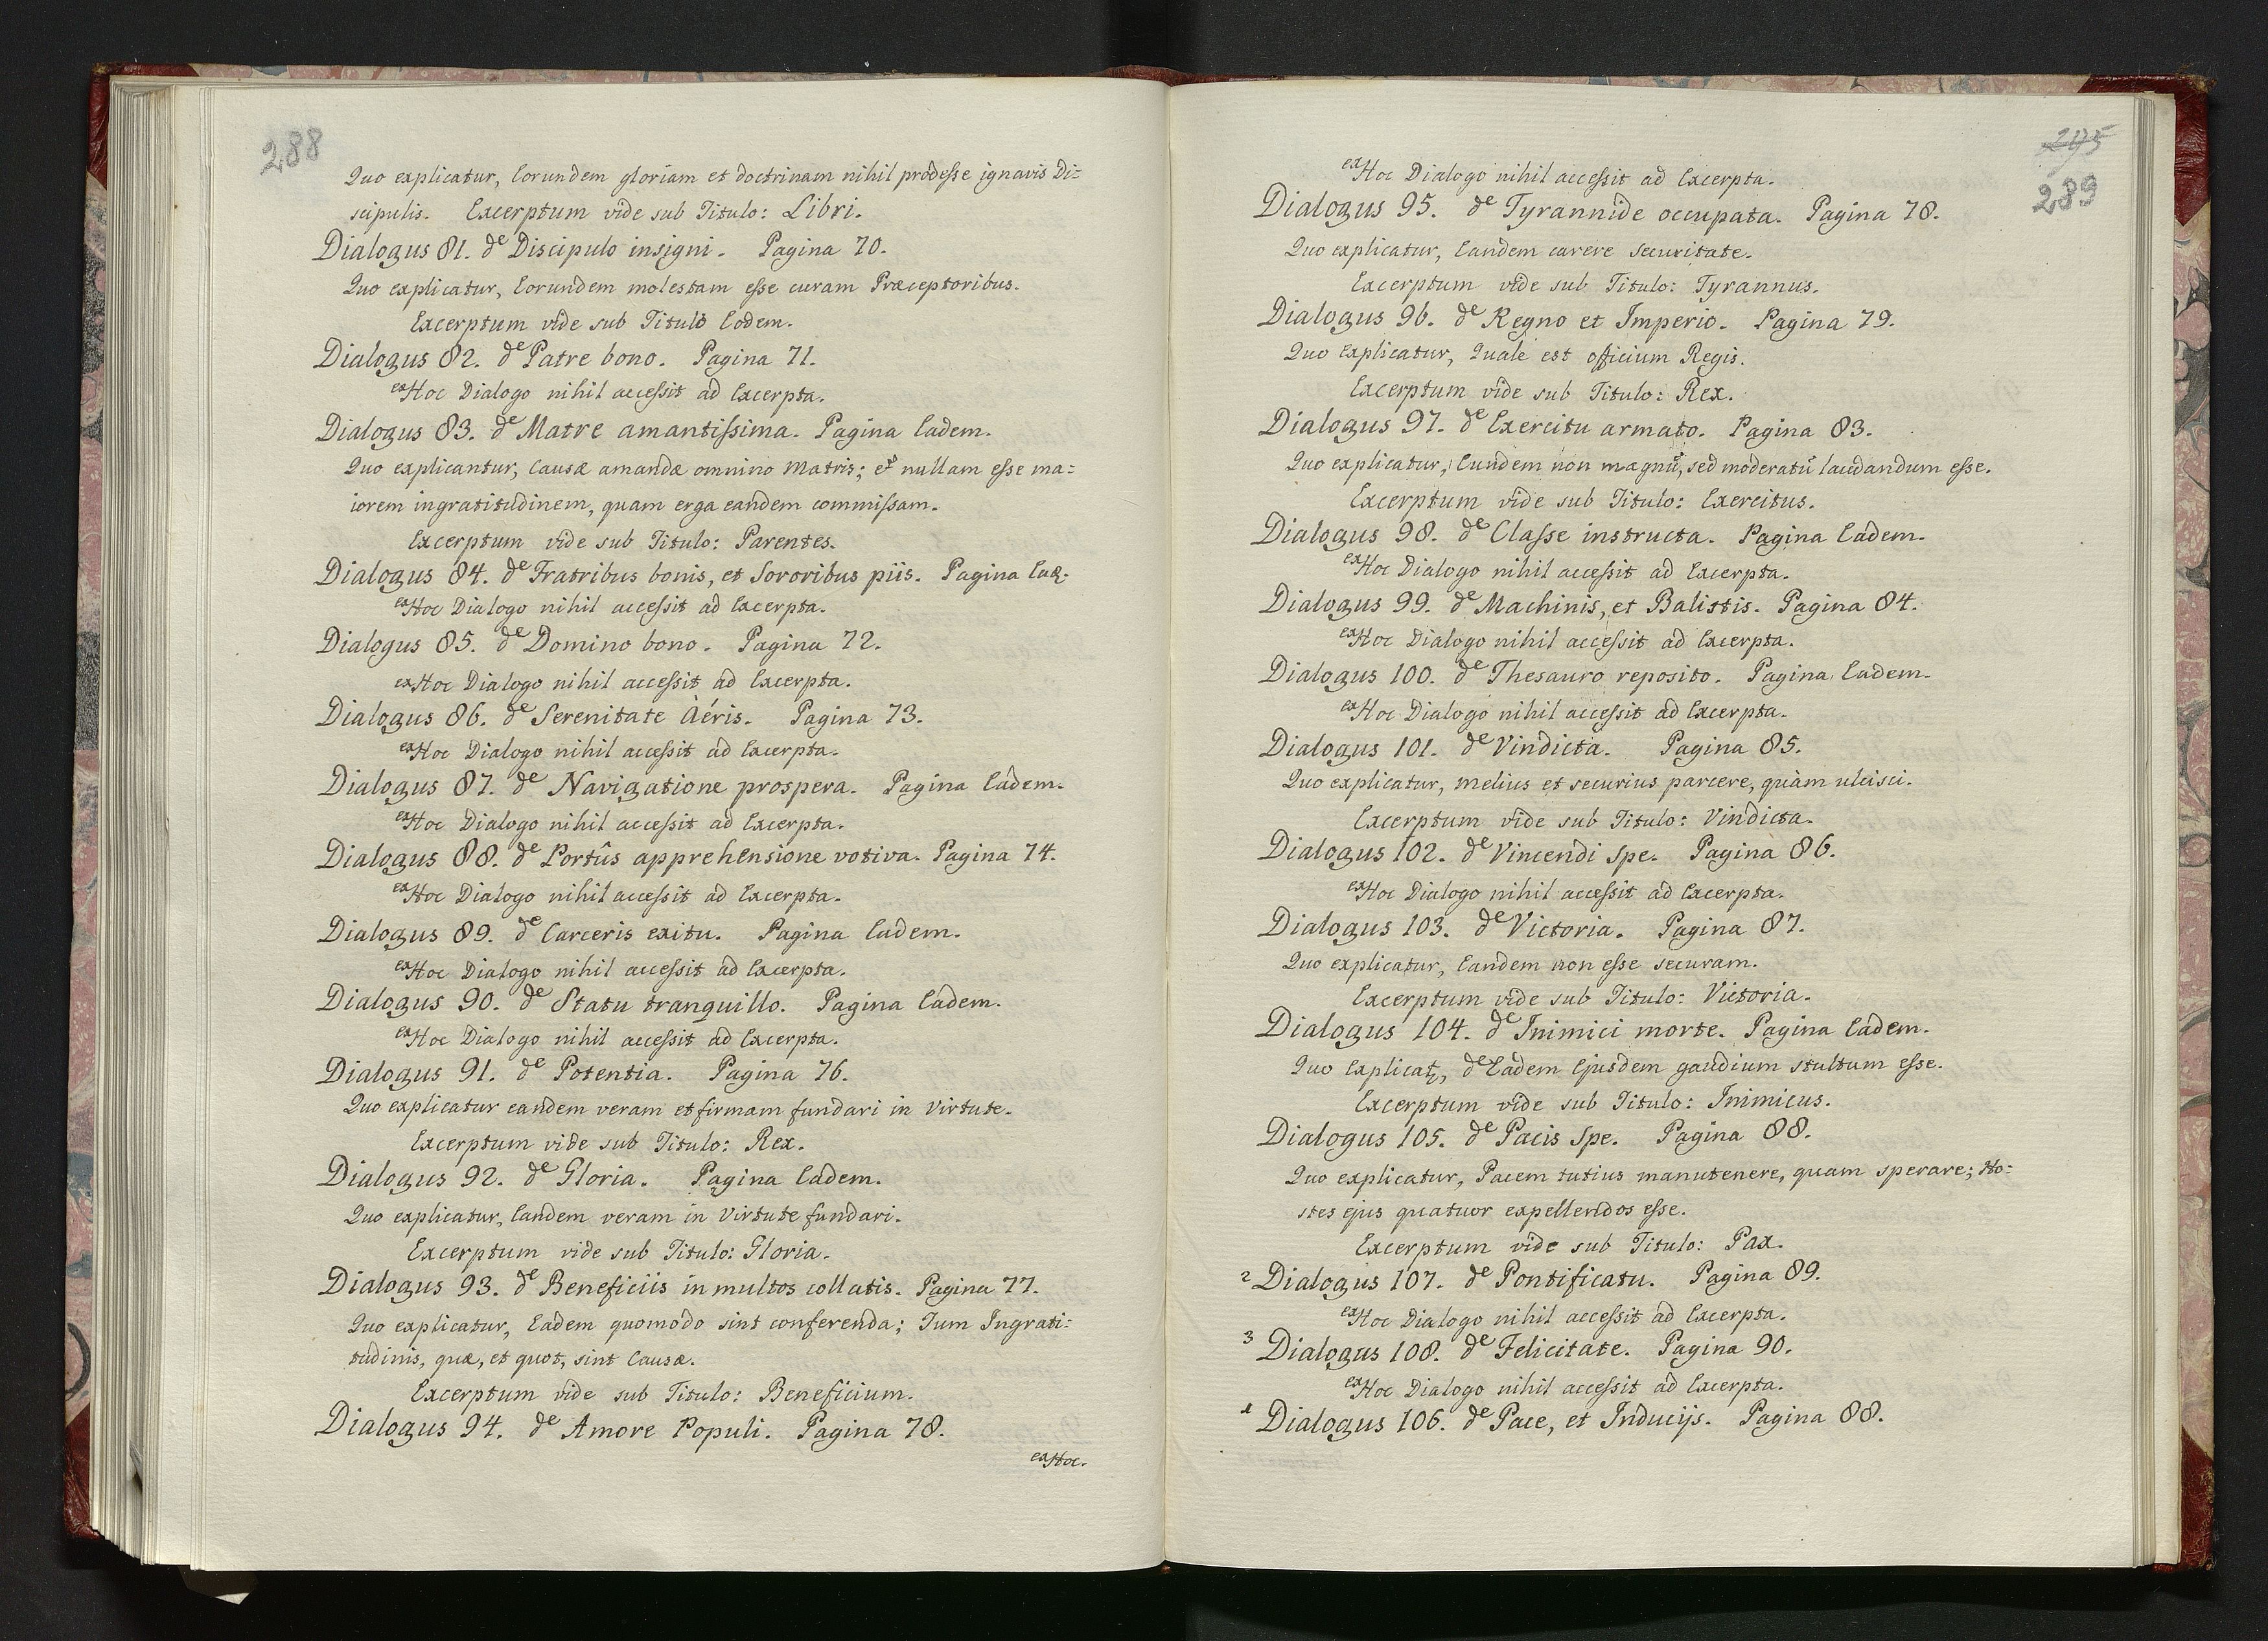 288
Quo explicatur, Eorundem gloriam et doctrinam nihil prodeſse ignavis Di=
scipulis. Excerptum vide sub Titulo: Libri.
Dialogus 81. de Discipulo insigni. Pagina 70.
Quo explicatur, Eorundem molestam eſse curam Præceptoribus.
Excerptum vide sub Titulo Eodem.
Dialogus 82. de Patre bono. Pagina 71.
ex Hoc Dialogo nihil acceſsit ad Excerpta.
Dialogus 83. de Matre amantiſsima. Pagina Eadem.
Quo explicantur, Causæ amandæ omnino Matris; et nullam eſse ma=
iorem ingratitudinem, quam erga eandem commiſsam.
Excerptum vide sub Titulo: Parentes.
Dialogus 84. de Fratribus bonis, et Sororibus piis. Pagina Ead.
ex Hoc Dialogo nihil acceſsit ad Excerpta.
Dialogus 85. de Domino bono. Pagina 72.
ex Hoc Dialogo nihil acceſsit ad Excerpta.
Dialogus 86. de Serenitate Aéris. Pagina 73.
ex Hoc Dialogo nihil acceſsit ad Excerpta.
Dialogus 87. de Navigatione prospera. Pagina Eadem.
ex Hoc Dialogo nihil acceſsit ad Excerpta.
Dialogus 88. de Portûs apprehensione votiva. Pagina 74.
ex Hoc Dialogo nihil acceſsit ad Excerpta.
Dialogus 89. de Carceris exitu. Pagina Eadem.
ex Hoc Dialogo nihil acceſsit ad Excerpta.
Dialogus 90. de Statu tranquillo. Pagina Eadem.
ex Hoc Dialogo nihil acceſsit ad Excerpta.
Dialogus 91. de Potentia. Pagina 76.
Quo explicatur eandem veram et firmam fundari in Virtute.
Excerptum vide sub Titulo: Rex.
Dialogus 92. de Gloria. Pagina Eadem.
Quo explicatur, Eandem veram in Virtute fundari.
Excerptum vide sub Titulo: Gloria.
Dialogus 93. de Beneficiis in multos collatis. Pagina 77.
Quo explicatur, Eadem quomodo sint conferenda; Tum Ingrati=
tudinis, quæ, et quot, sint Causæ.
Excerptum vide sub Titulo: Beneficium.
Dialogus 94. de Amore Populi. Pagina 78.
ex Hoc.
295
289
ex Hoc Dialogo nihil acceſsit ad Excerpta.
Dialogus 95. de Tyrannide occupata. Pagina 78.
Quo explicatur, Eandem carere securitate.
Excerptum vide sub Titulo: Tyrannus.
Dialogus 96. de Regno et Imperio. Pagina 79.
Quo explicatur, Quale est officium Regis.
Excerptum vide sub Titulo: Rex.
Dialogus 97. de Exercitu armato. Pagina 83.
Quo explicatur, Eundem non magnū, sed moderatū laudandum eſse.
Excerptum vide sub Titulo: Exercitus.
Dialogus 98. de Claſse instructa. Pagina Eadem.
ex Hoc Dialogo nihil acceſsit ad Excerpta.
Dialogus 99. de Machinis, et Balistis. Pagina 84.
ex Hoc Dialogo nihil acceſsit ad Excerpta.
Dialogus 100. de Thesauro reposito. Pagina Eadem.
ex Hoc Dialogo nihil acceſsit ad Excerpta.
Dialogus 101. de Vindicta. Pagina 85.
Quo explicatur, melius et securius parcere, quàm ulcisci.
Excerptum vide sub Titulo: Vindicta.
Dialogus 102. de Vincendi Spe. Pagina 86.
ex Hoc Dialogo nihil acceſsit ad Excerpta.
Dialogus 103. de Victoria. Pagina 87.
Quo explicatur, Eandem non eſse securam.
Excerptum vide sub Titulo: Victoria.
Dialogus 104. de Inimici morte. Pagina Eadem.
Quo Explicatꝛ, de Eadem Ejusdem gaudium stultum eſse.
Excerptum vide sub Titulo: Inimicus.
Dialogus 105. de Pacis Spe. Pagina 88.
Quo explicatur, Pacem tutius manutenere, quam sperare; Ho=
stes ejus quatuor expellendos eſse.
Excerptum vide sub Titulo: Pax.
2 Dialogus 107. de Pontificatu. Pagina 89.
ex Hoc Dialogo nihil acceſsit ad Excerpta.
3 Dialogus 108. de Felicitate. Pagina 90.
ex Hoc Dialogo nihil acceſsit ad Excerpta.
1 Dialogus 106. de Pace, et Inducijs. Pagina 88.